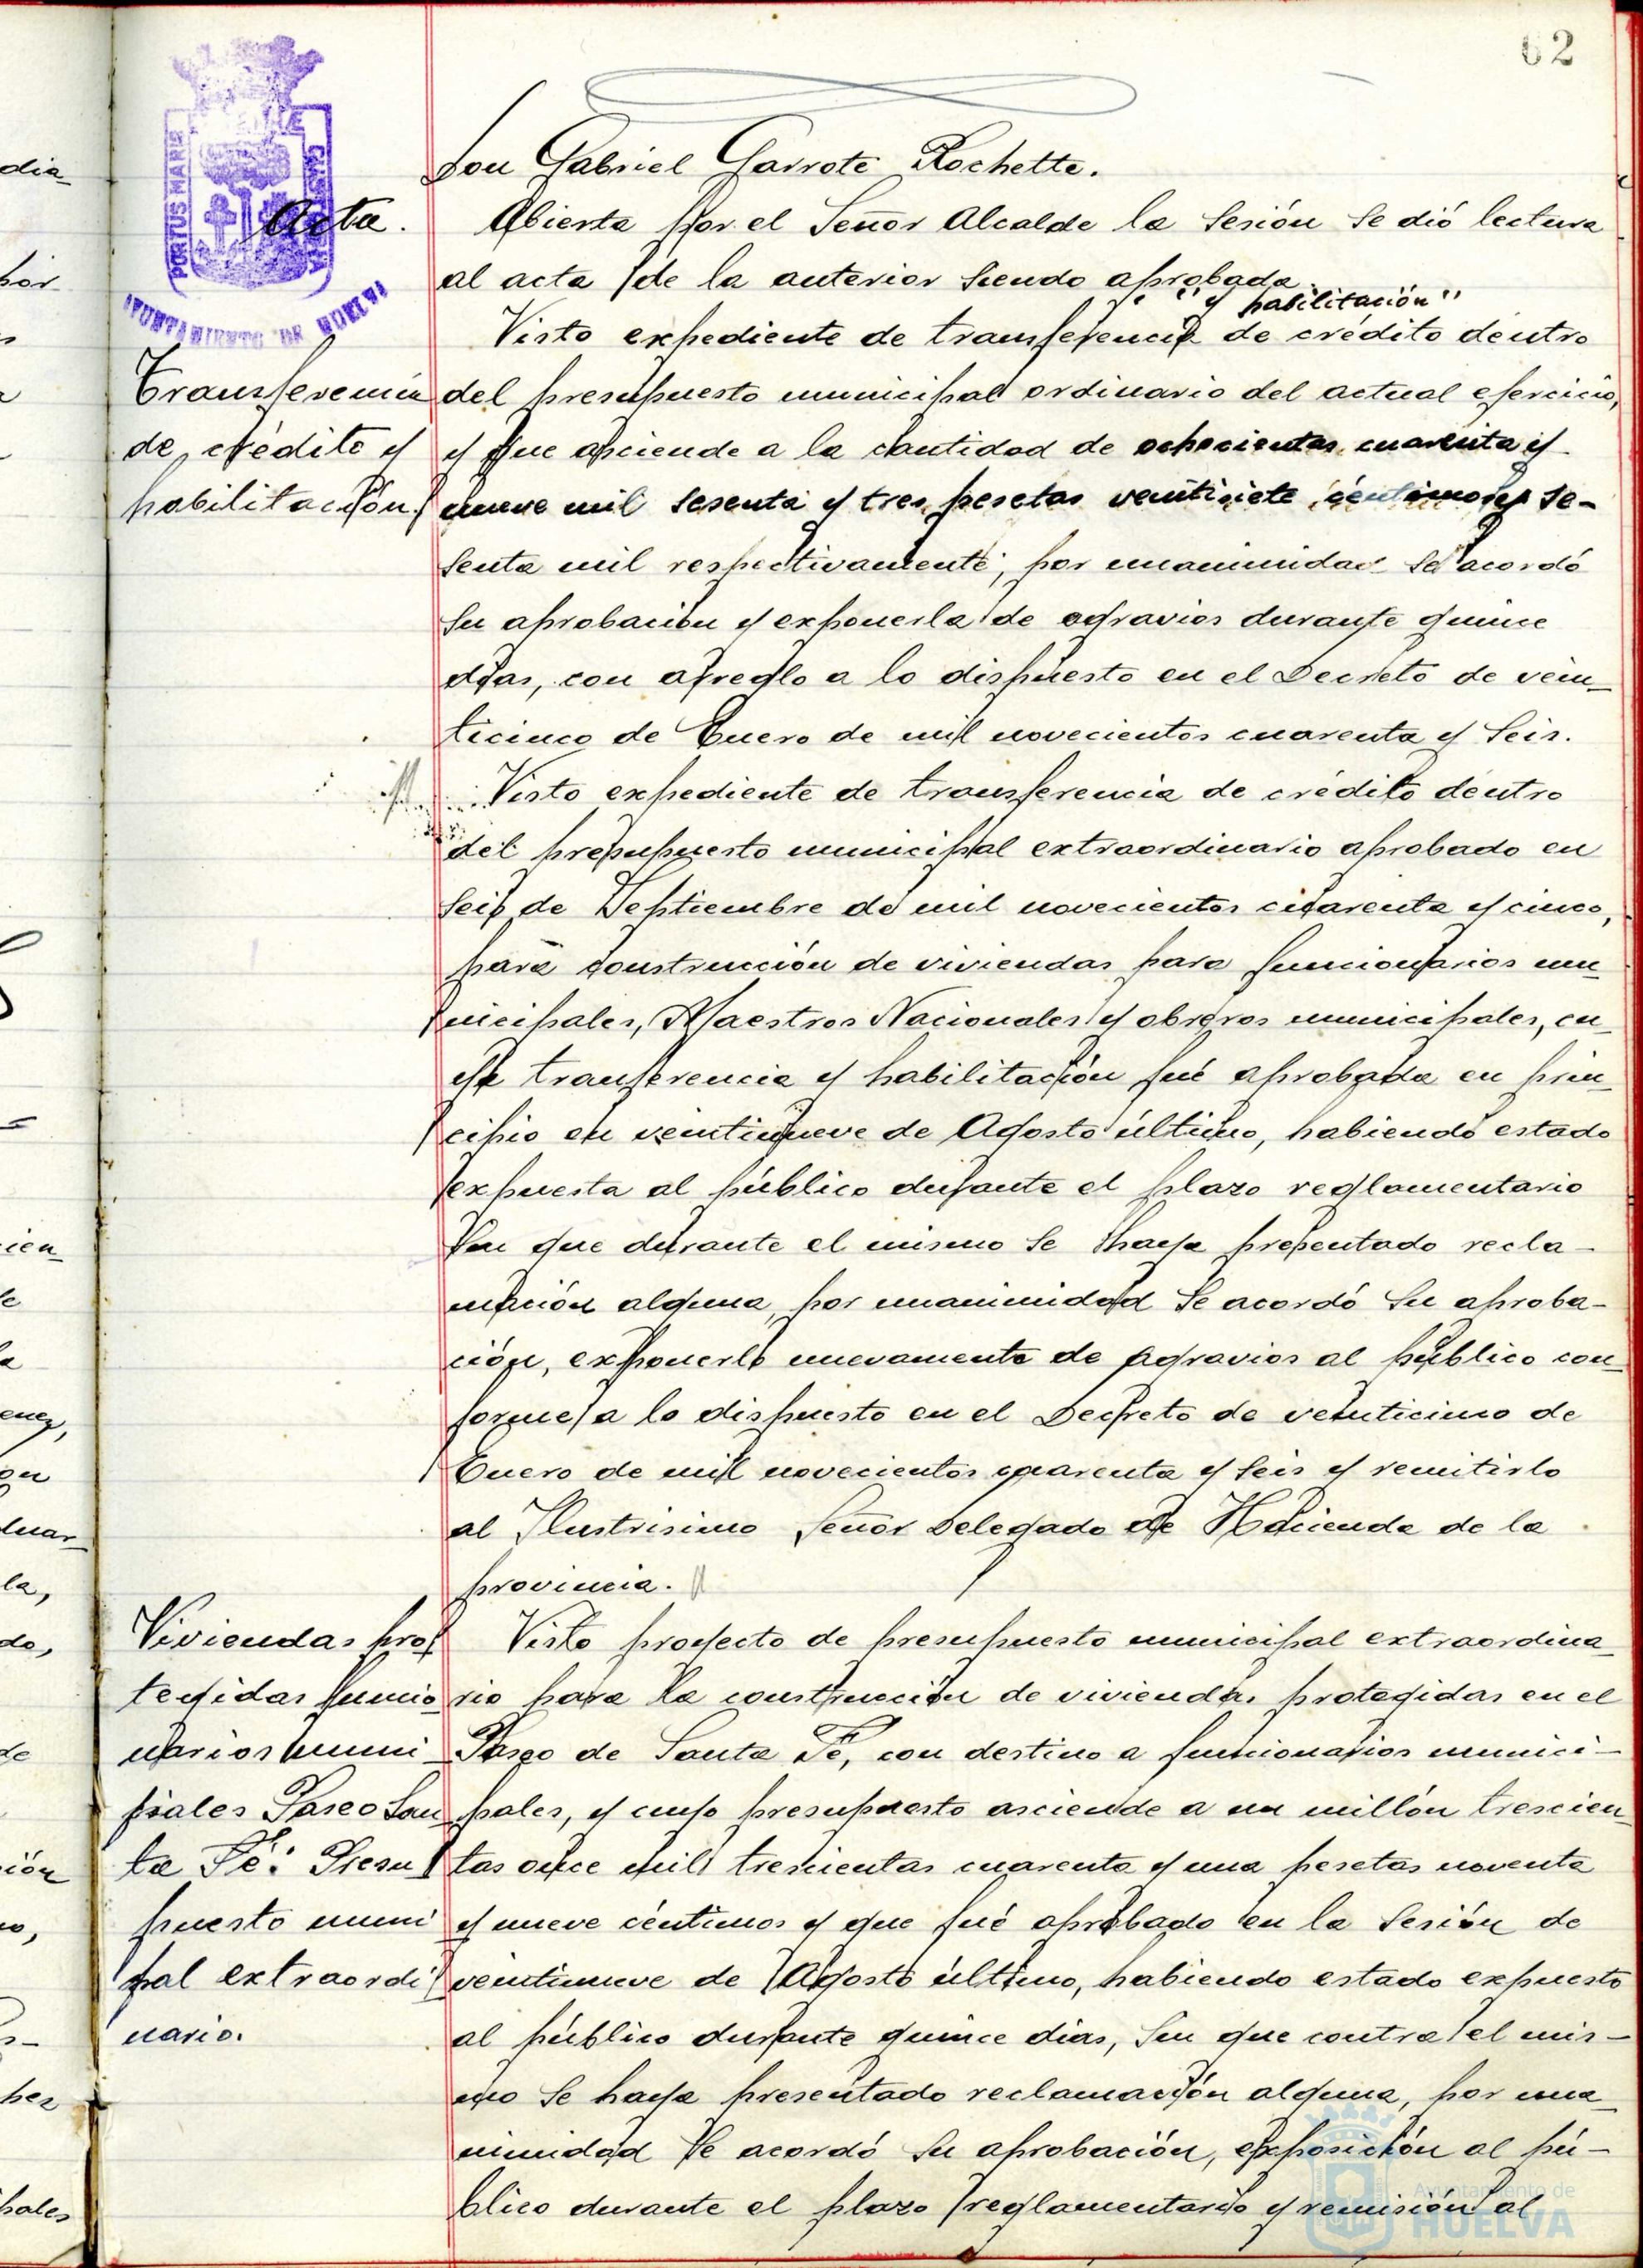 62
Don Gabriel Garrote Rochette.
Acta.
Abierta por el Señor Alcalde la Sesión se dió lectura
al acta de la anterior siendo aprobada.
"y habilitación"
Visto expediente de transferencia de crédito dentro
Transferencia
de crédito y
habilitación.
del presupuesto municipal ordinario del actual ejercicio,
y que asciende a la cantidad de ochocientas cuarenta y
nueve mil sesenta y tres pesetas veintisiete céntimos y se-
senta mil respectivamente, por unanimidad se acordó
su aprobación y exponerla de agravios durante quince
días, con arreglo a lo dispuesto en el Decreto de vein-
ticinco de Enero de mil novecientos cuarenta y seis.
Visto expediente de transferencia de crédito dentro
del presupuesto municipal extraordinario aprobado en
seis de Septiembre de mil novecientos cuarenta y cinco,
para construcción de viviendas para funcionarios mu-
nicipales, Maestros Nacionales y obreros municipales, cu-
ya transferencia y habilitación fué aprobada en prin-
cipio en veintinueve de Agosto último, habiendo estado
expuesta al público durante el plazo reglamentario
sin que durante el mismo se haya presentado recla-
mación alguna, por unanimidad se acordó su aproba-
ción, exponerlo nuevamente de agravios al público con-
forme a lo dispuesto en el Decreto de veinticinco de
Enero de mil novecientos cuarenta y seis y remitirlo
al Ilustrisimo Señor Delegado de Hacienda de la
provincia.
Viviendas pro-
tegidas funcio-
narios muni-
pales Paseo San
ta Fé: Presu
puesto muni
pal extraordi
nario.
Visto proyecto de presupuesto municipal extraordina-
rio para la construcción de viviendas protegidas en el
Paseo de Santa Fé, con destino a funcionarios munici-
pales, y cuyo presupuesto asciende a un millón trescien
tas once mil trescientas cuarenta y una pesetas noventa
y nueve céntimos y que fué aprobado en la sesión de
veintinueve de Agosto último, habiendo estado expuesto
al público durante quince días, sin que contra el mis-
mo se haya presentado reclamación alguna, por una-
nimidad se acordó su aprobación, exposición al pú-
blico durante el plazo reglamentario y remisión al
PORTUS MARIS
AYUNTAMIENTO DE HUELVA
Ayuntamiento de
HUELVA